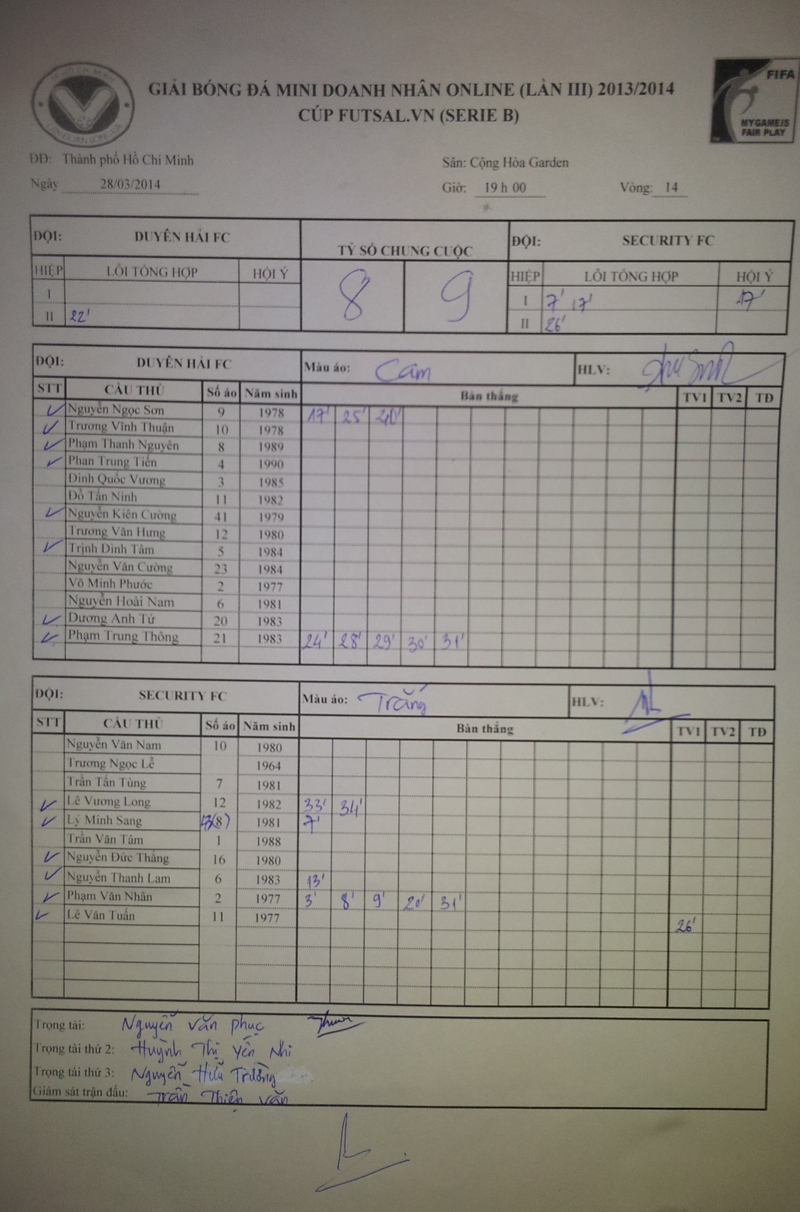 GIẢI BÓNG ĐÁ MINI DOANH NHÂN ONLINE (LẦN III) 2013/2014
CÚP FUTSAL.VN (SERIE B)
FIFA
MY GAME IS
FAIR PLAY
ĐĐ: Thành phố Hồ Chí Minh Sân: Cộng Hòa Garden
Ngày 28/03/2014 Giờ: 19 h 00 Vòng: 14
ĐỘI: DUYÊN HẢI FC TỶ SỐ CHUNG CUỘC ĐỘI: SECURITY FC
HIỆP LỖI TỔNG HỢP HỘI Ý 8 9 HIỆP LỖI TỔNG HỢP HỘI Ý
I I 7' 17' 17'
II 22' II 26'
ĐỘI: DUYÊN HẢI FC Màu áo: Cam HLV:
STT CẦU THỦ Số áo Năm sinh Bàn thắng TV1 TV2 TĐ
Nguyễn Ngọc Sơn 9 1978 17' 25' 40'
Trương Vĩnh Thuận 10 1978
Phạm Thanh Nguyên 8 1989
Phan Trung Tiến 4 1990
Đinh Quốc Vương 3 1985
Đỗ Tấn Ninh 11 1982
Nguyễn Kiên Cường 41 1979
Trương Văn Hưng 12 1980
Trịnh Đình Tâm 5 1984
Nguyễn Văn Cường 23 1984
Võ Minh Phước 2 1977
Nguyễn Hoài Nam 6 1981
Dương Anh Tứ 20 1983
Phạm Trung Thông 21 1983 24' 28' 29' 30' 31'
ĐỘI: SECURITY FC Màu áo: Trắng HLV:
STT CẦU THỦ Số áo Năm sinh Bàn thắng TV1 TV2 TĐ
Nguyễn Văn Nam 10 1980
Trương Ngọc Lễ 1964
Trần Tấn Tùng 7 1981
Lê Vương Long 12 1982 33' 34'
Lý Minh Sang (8) 1981 7'
Trần Văn Tâm 1 1988
Nguyễn Đức Thắng 16 1980
Nguyễn Thanh Lam 6 1983 13'
Phạm Văn Nhân 2 1977 3' 8' 9' 20' 31'
Lê Văn Tuấn 11 1977 26'
Trọng tài: Nguyễn Văn Phục
Trọng tài thứ 2: Huỳnh Thị Yến Nhi
Trọng tài thứ 3: Nguyễn Hữu Trường
Giám sát trận đấu: Trần Thiện Văn